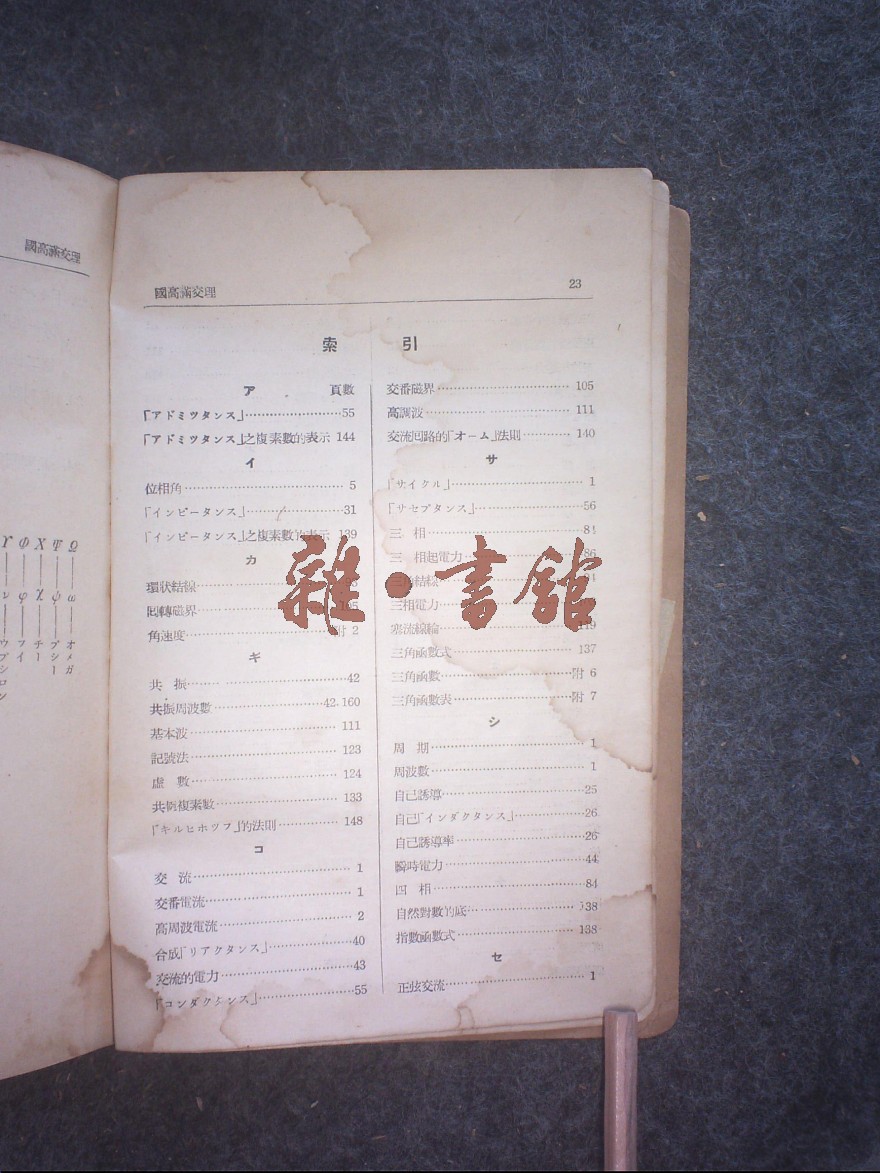 國高滿交理
Υ Φ Χ Ψ Ω
υ φ χ ψ ω
ウプシロン
フイ
チー
プシー
オメガ
國高滿交理 23
索 引
ア 頁數
「アドミツタンス」 55
「アドミツタンス」之複素數的表示 144
イ
位相角 5
「インピータンス」 31
「インピータンス」之複素數的表示 139
カ
環狀結線
囘轉磁界 105
角速度 附 2
ギ
共 振 42
共振周波數 42,160
基本波 111
記號法 123
虛 數 124
共軛複素數 133
「キルヒホツフ」的法則 148
コ
交 流 1
交番電流 1
高周波電流 2
合成「リアクタンス」 40
交流的電力 43
「コンダクタンス」 55
交番磁界 105
高調波 111
交流囘路的「オーム」法則 140
サ
「サイクル」 1
「サセプタンス」 56
三 相 84
三 相起電力 86
三角結線
三相電力
塞流線輪 119
三角函數式 137
三角函數 附 6
三角函數表 附 7
シ
周 期 1
周波數 1
自己誘導 25
自己「インダクタンス」 26
自己誘導率 26
瞬時電力 44
四 相 84
自然對數的底 138
指數函數式 138
セ
正弦交流 1
雜·書館